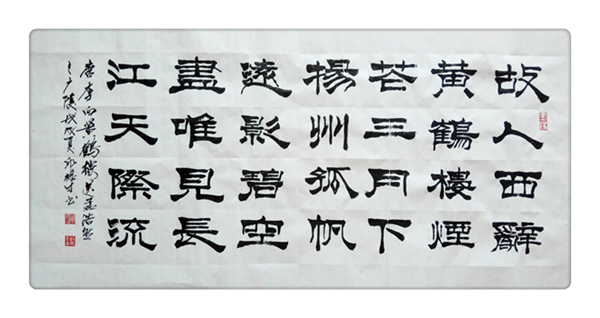 故人西辭
黄鶴樓煙
花三月下
揚州孤帆
遠影碧空
盡唯見長
江天際流
唐李白黄鶴樓送孟浩然
之广陵戊戌夏书